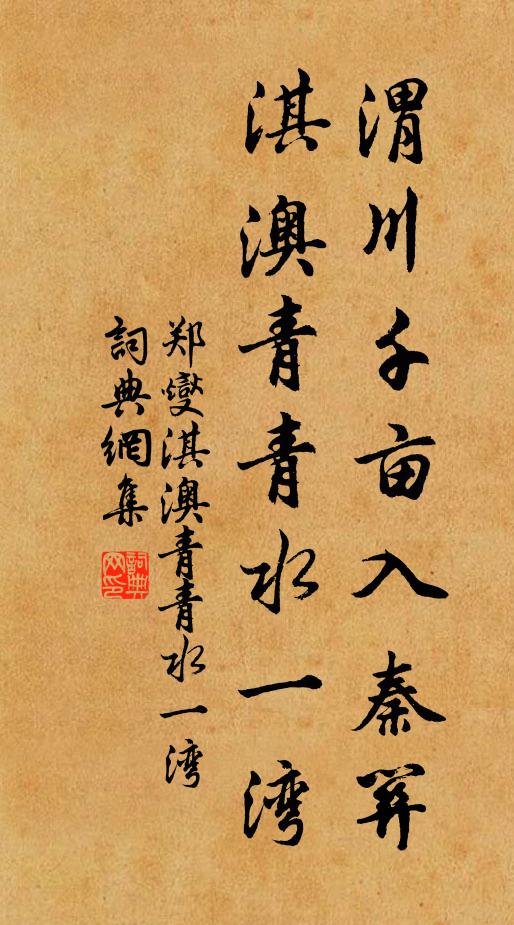 渭川千亩入秦關
淇澳青青水一湾
郑燮淇澳青青水一湾
詞典網集
詞典網印